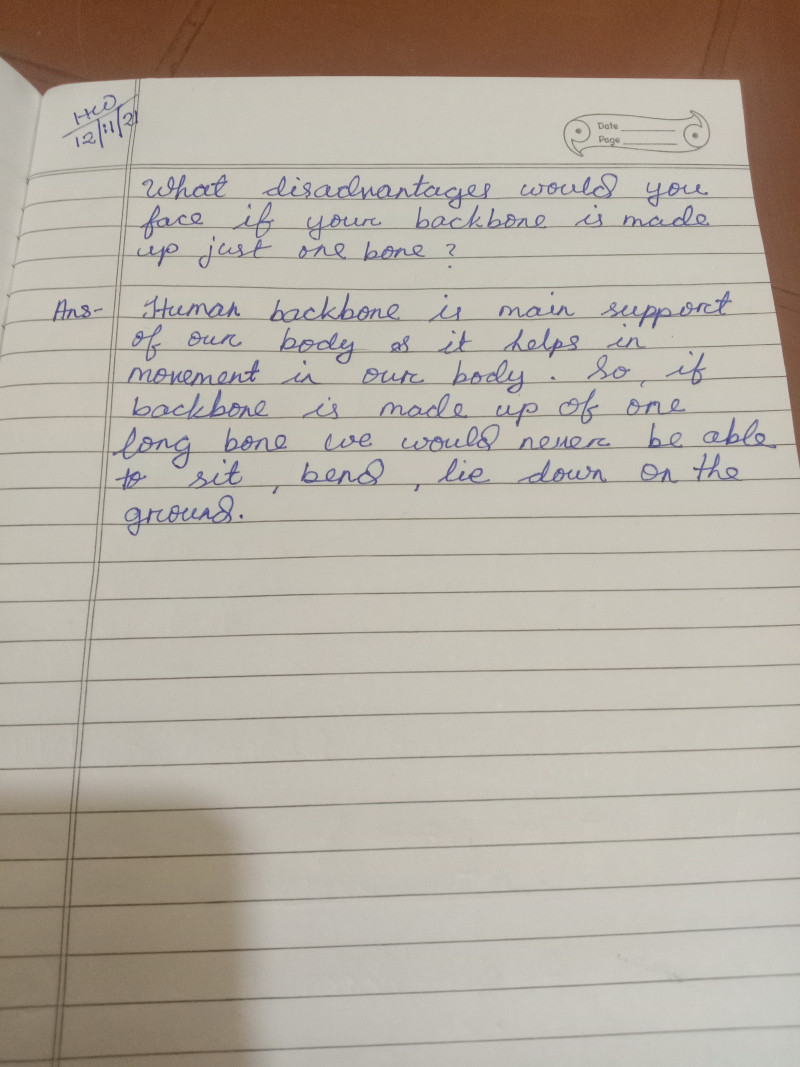 HW
12/11/21
Date
Page
What disadvantages would you
face if your backbone is made
up just one bone ?
Ans- Human backbone is main support
of our body as it helps in
movement in our body. So, if
backbone is made up of one
long bone we would never be able
to sit, bend, lie down on the
ground.